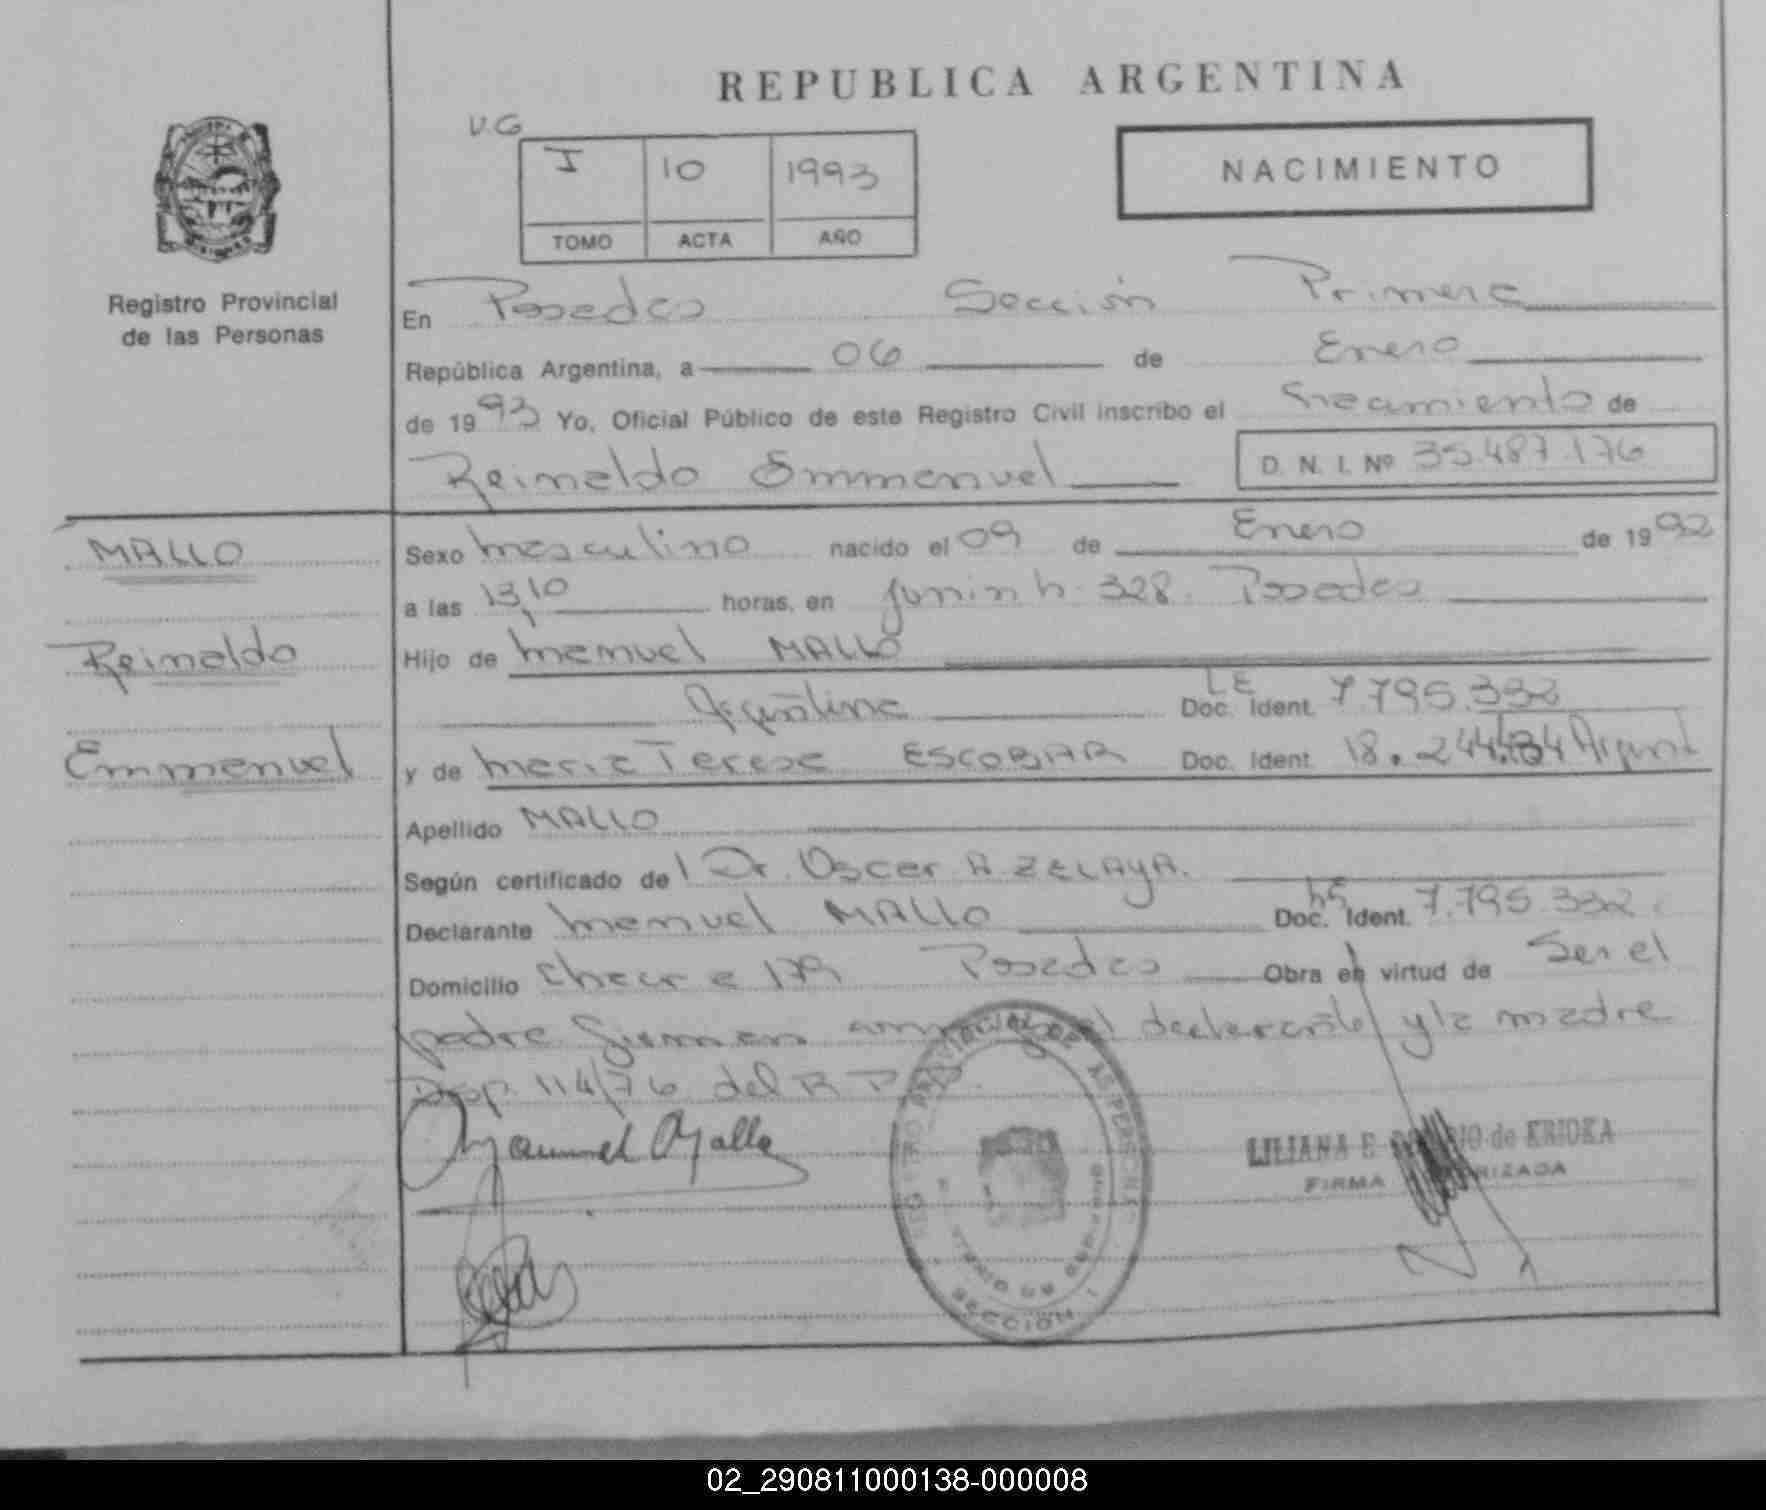 REPUBLICA ARGENTINA
V.G
I 10 1993
TOMO ACTA AÑO
NACIMIENTO
Registro Provincial
de las Personas
En Posadas Sección Primera
República Argentina, a 06 de Enero
de 1993 Yo, Oficial Público de este Registro Civil inscribo el Nacimiento de
Reinaldo Emmanuel
D. N. I. Nº 35.487.176
MALLO
Reinaldo
Emmanuel
Sexo masculino nacido el 09 de Enero de 1992
a las 13,10 horas, en Junin N. 328. Posadas
Hijo de Manuel MALLO
Argentina LE Doc. Ident. 7.795.332
y de Maria Teresa ESCOBAR Doc. Ident. 18.244. Argent
Apellido MALLO
Según certificado de Dr. Oscar A ZELAYA.
Declarante Manuel MALLO Doc. Ident. 7.795.332
Domicilio Chacra 179 Posadas Obra en virtud de Ser el
padre firman el declarante y la madre
Disp. 114/76 del R P
Manuel Mallo
LILIANA E de KRIOKA
FIRMA AUTORIZADA
REGISTRO PROVINCIAL DE LAS PERSONAS
SECCIÓN 1
02_290811000138-000008